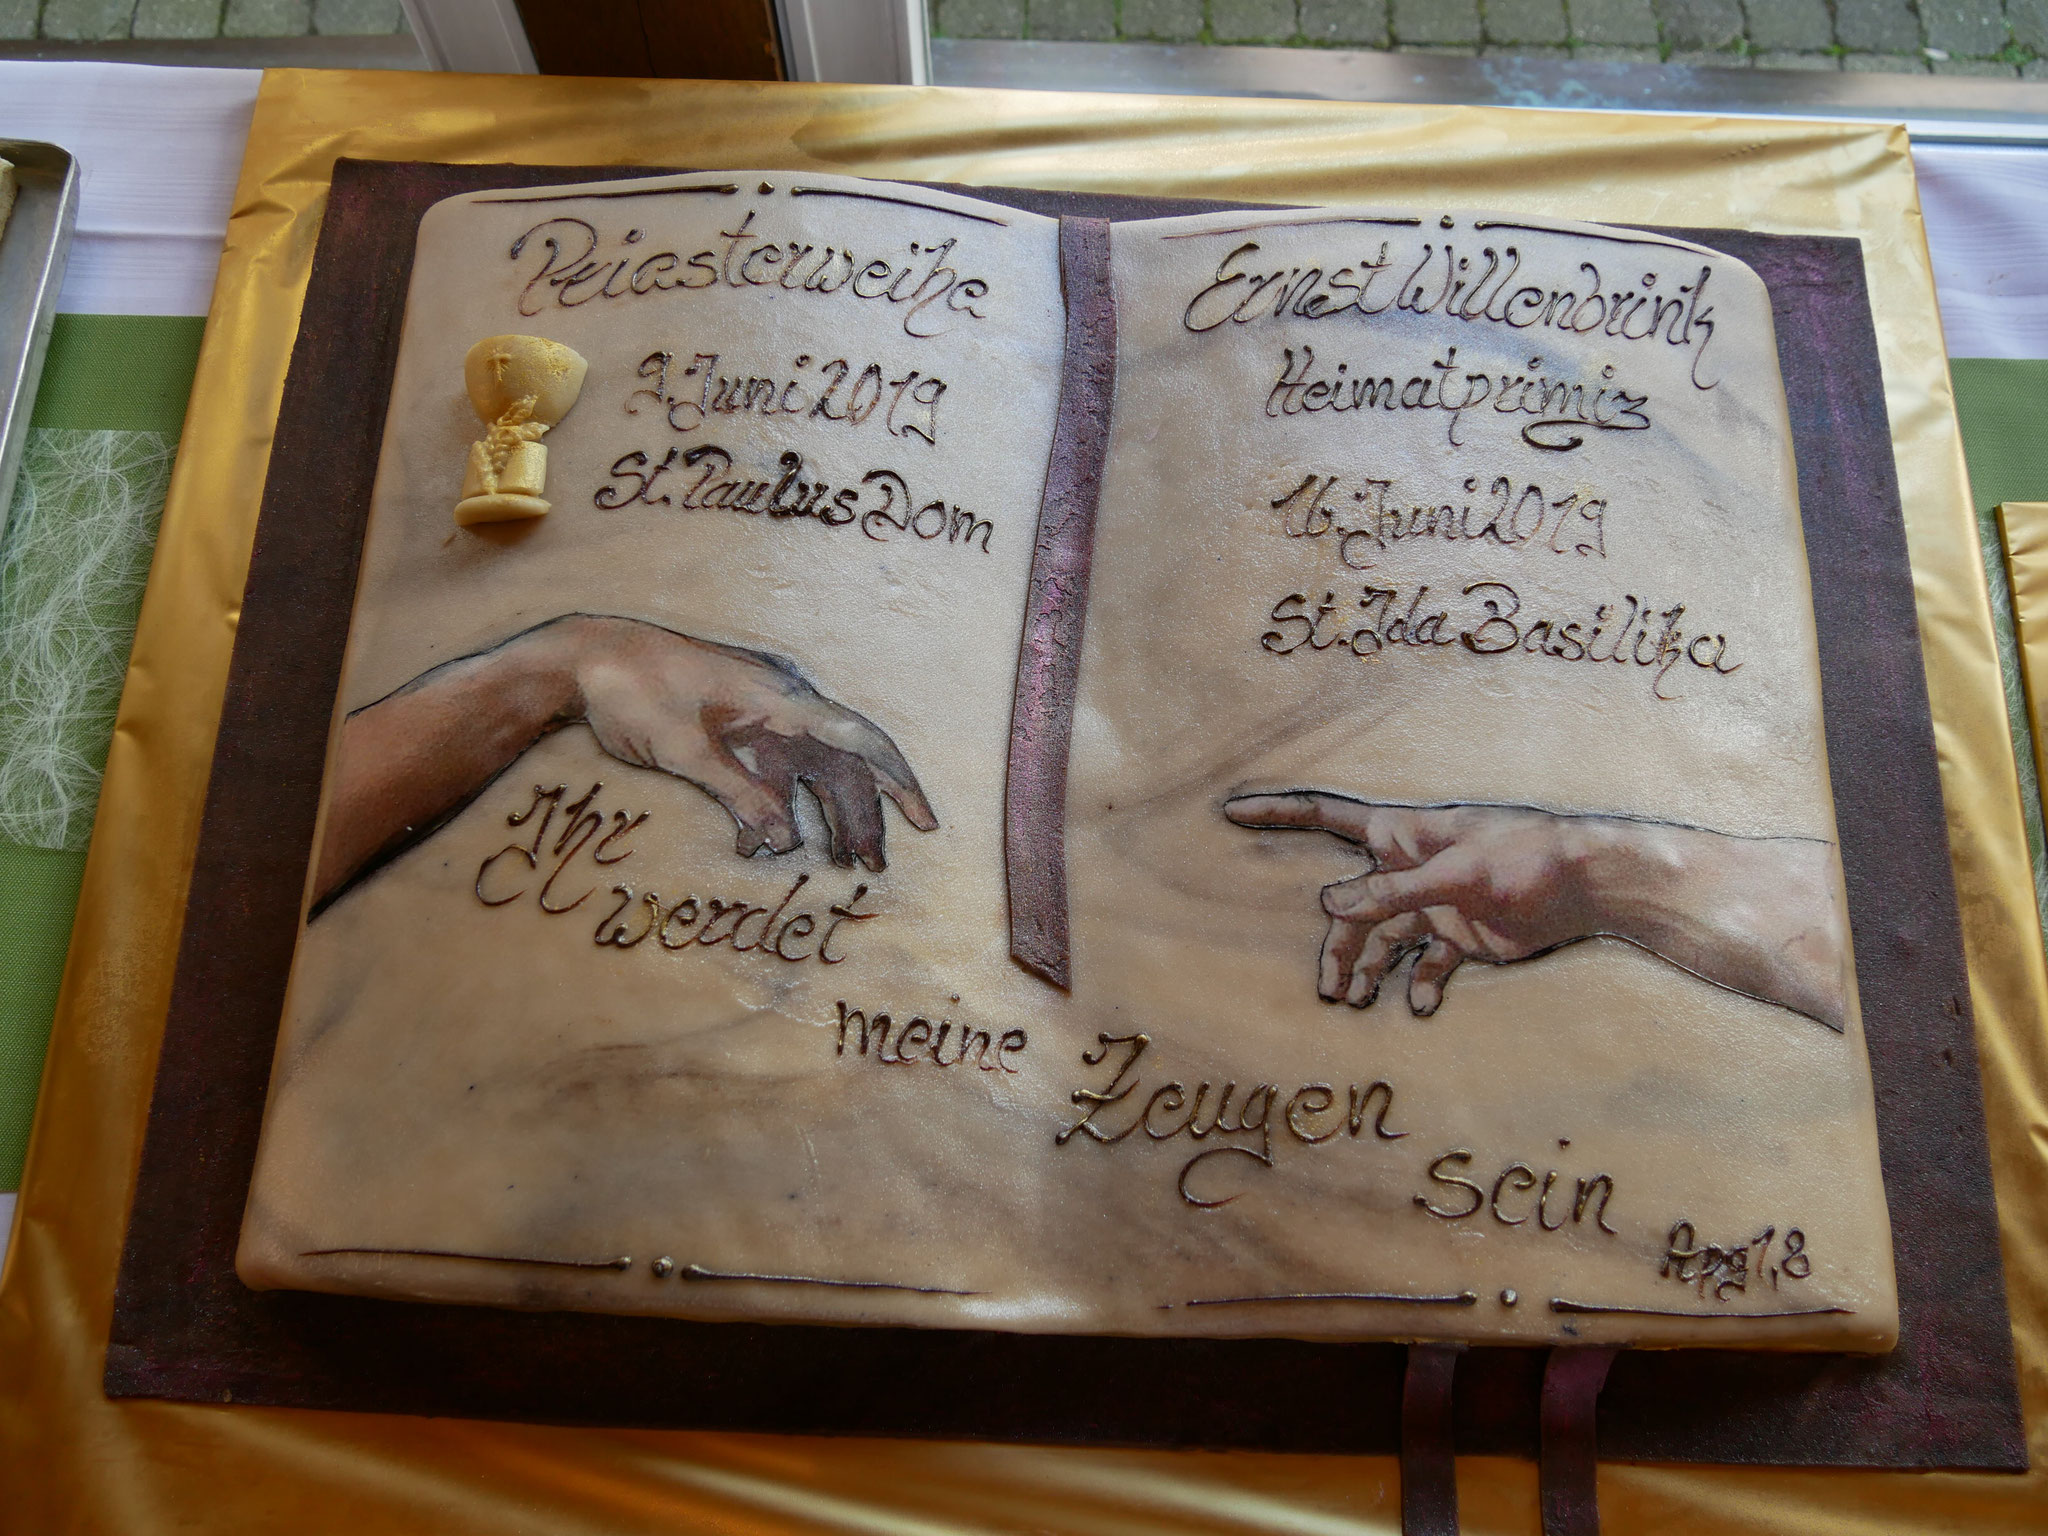 Priesterweihe
9. Juni 2019
St. Paulus Dom
Ihr
werdet
meine
Ernst Willenbrink
Heimatprimiz
16. Juni 2019
St. Ida Basilika
Zeugen
sein
Apg 1,8